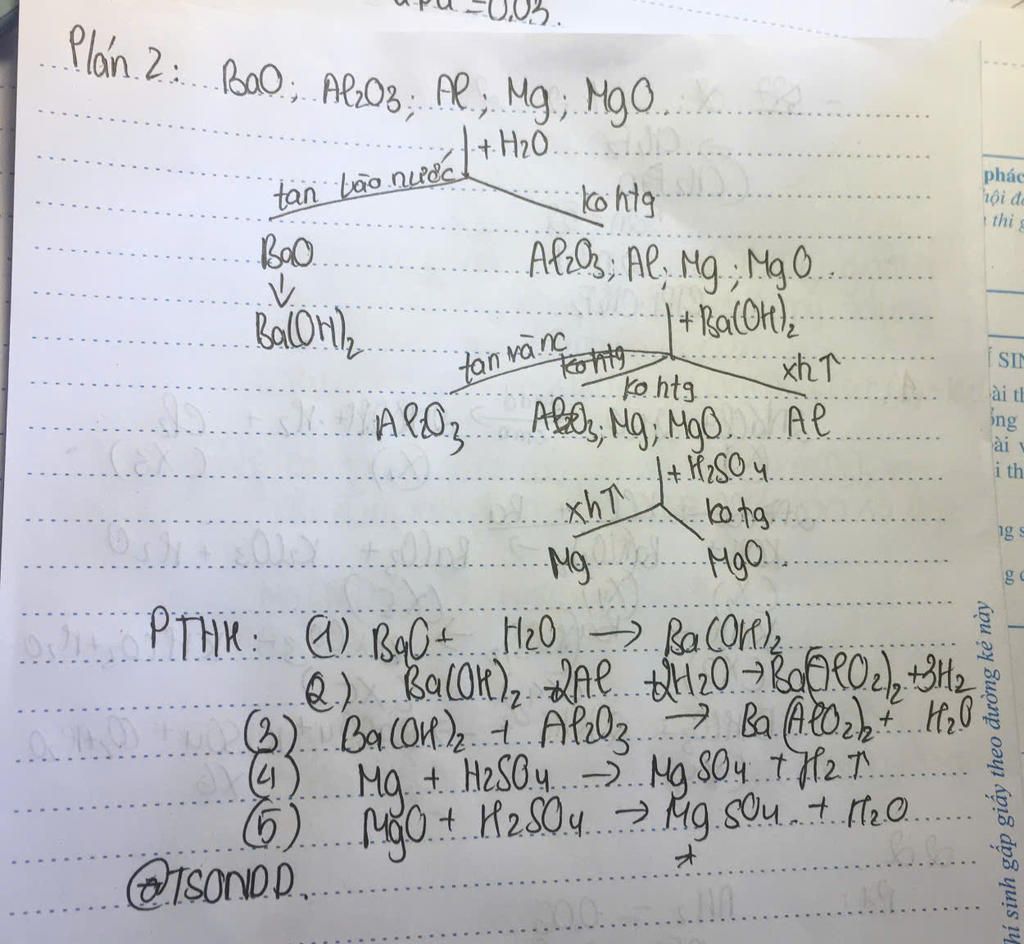 =0,03.
Plán 2: BaO; Al2O3; Al; Mg; MgO.
+ H2O
tan vào nước ko htg
BaO Al2O3; Al; Mg; MgO.
↓
Ba(OH)2 + Ba(OH)2
tan và nc ko htg ko htg xh↑
Al2O3 Al2O3; Mg; MgO. Al
+ H2SO4
xh↑ ko tg
Mg MgO.
PTHH: (1) BaO + H2O → Ba(OH)2
2) Ba(OH)2 +2Al +2H2O → Ba(AlO2)2 +3H2
(3) Ba(OH)2 + Al2O3 → Ba(AlO2)2 + H2O
(4) Mg + H2SO4 → MgSO4 + H2↑
(5) MgO + H2SO4 → MgSO4 + H2O
@TSONDD.
phác
thi g
SIN
ài th
ài v
i th
ng s
g c
hí sinh gấp giấy theo đường kẻ này